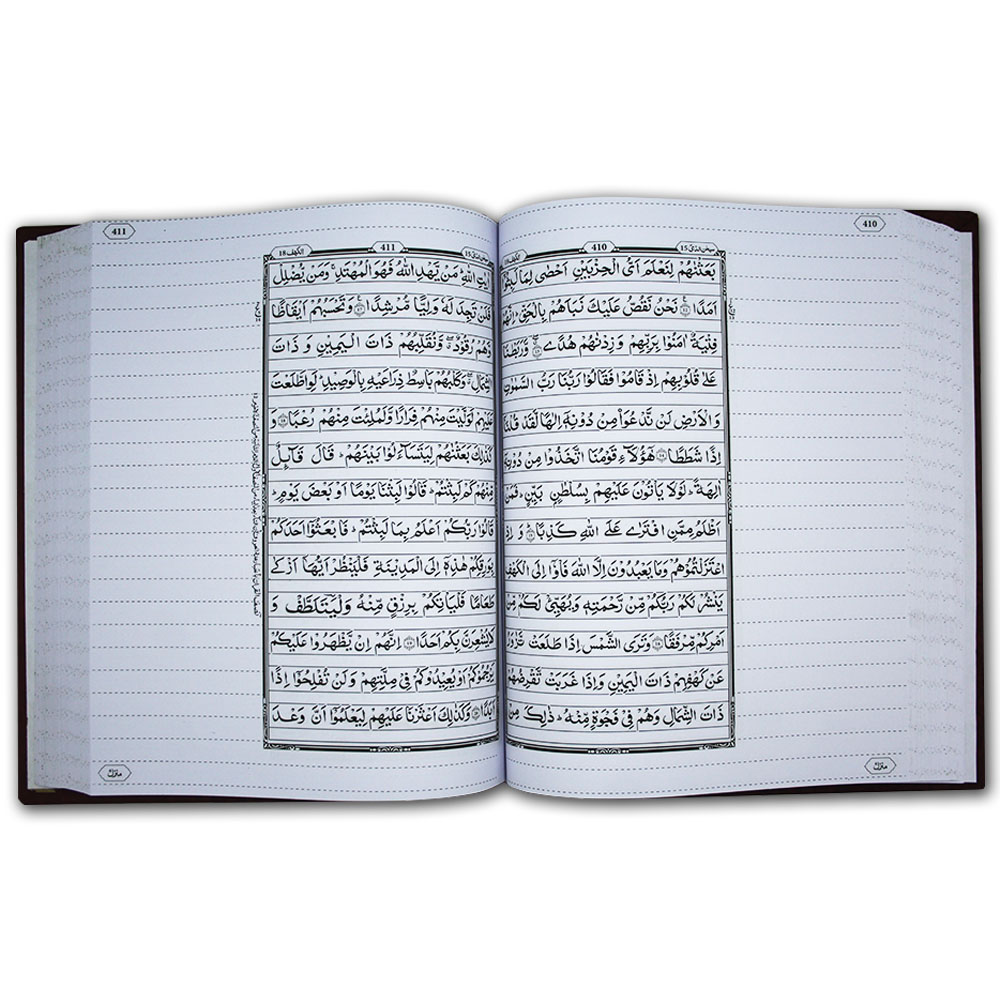 410
410
15
بَعَثْنٰهُمْ لِنَعْلَمَ اَیُّ الْحِزْبَیْنِ اَحْصٰی لِمَا لَبِثُوْۤا
اَمَدًا ۧ نَحْنُ نَقُصُّ عَلَیْكَ نَبَاَهُمْ بِالْحَقِّ ؕ اِنَّهُمْ
فِتْیَةٌ اٰمَنُوْا بِرَبِّهِمْ وَ زِدْنٰهُمْ هُدًی ۖ وَّ رَبَطْنَا
عَلٰی قُلُوْبِهِمْ اِذْ قَامُوْا فَقَالُوْا رَبُّنَا رَبُّ السَّمٰوٰتِ
وَ الْاَرْضِ لَنْ نَّدْعُوَا۠ مِنْ دُوْنِهٖۤ اِلٰهًا لَّقَدْ قُلْنَاۤ
اِذًا شَطَطًا هٰۤؤُلَآءِ قَوْمُنَا اتَّخَذُوْا مِنْ دُوْنِهٖۤ
اٰلِهَةً ؕ لَوْ لَا یَاْتُوْنَ عَلَیْهِمْ بِسُلْطٰنٍۭ بَیِّنٍ ؕ فَمَنْ
اَظْلَمُ مِمَّنِ افْتَرٰی عَلَی اللّٰهِ كَذِبًا ؕ وَ اِذِ
اعْتَزَلْتُمُوْهُمْ وَ مَا یَعْبُدُوْنَ اِلَّا اللّٰهَ فَاْوٗۤا اِلَی الْكَهْفِ
یَنْشُرْ لَكُمْ رَبُّكُمْ مِّنْ رَّحْمَتِهٖ وَ یُهَیِّئْ لَكُمْ مِّنْ
اَمْرِكُمْ مِّرْفَقًا وَ تَرَی الشَّمْسَ اِذَا طَلَعَتْ تَّزٰوَرُ
عَنْ كَهْفِهِمْ ذَاتَ الْیَمِیْنِ وَ اِذَا غَرَبَتْ تَّقْرِضُهُمْ
ذَاتَ الشِّمَالِ وَ هُمْ فِیْ فَجْوَةٍ مِّنْهُ ؕ ذٰلِكَ مِنْ
منزل
411
15
411
الكهف 18
اٰیٰتِ اللّٰهِ ؕ مَنْ یَّهْدِ اللّٰهُ فَهُوَ الْمُهْتَدِ ۚ وَ مَنْ یُّضْلِلْ
فَلَنْ تَجِدَ لَهٗ وَلِیًّا مُّرْشِدًا ۧ وَ تَحْسَبُهُمْ اَیْقَاظًا
وَّ هُمْ رُقُوْدٌ ۖ وَّ نُقَلِّبُهُمْ ذَاتَ الْیَمِیْنِ وَ ذَاتَ
الشِّمَالِ ۖ وَ كَلْبُهُمْ بَاسِطٌ ذِرَاعَیْهِ بِالْوَصِیْدِ ؕ لَوِ اطَّلَعْتَ
عَلَیْهِمْ لَوَلَّیْتَ مِنْهُمْ فِرَارًا وَّ لَمُلِئْتَ مِنْهُمْ رُعْبًا وَ
كَذٰلِكَ بَعَثْنٰهُمْ لِیَتَسَآءَلُوْا بَیْنَهُمْ ؕ قَالَ قَآئِلٌ
مِّنْهُمْ كَمْ لَبِثْتُمْ ؕ قَالُوْا لَبِثْنَا یَوْمًا اَوْ بَعْضَ یَوْمٍ ؕ
قَالُوْا رَبُّكُمْ اَعْلَمُ بِمَا لَبِثْتُمْ ؕ فَابْعَثُوْۤا اَحَدَكُمْ
بِوَرِقِكُمْ هٰذِهٖۤ اِلَی الْمَدِیْنَةِ فَلْیَنْظُرْ اَیُّهَاۤ اَزْكٰی
طَعَامًا فَلْیَاْتِكُمْ بِرِزْقٍ مِّنْهُ وَ لْیَتَلَطَّفْ وَ
لَا یُشْعِرَنَّ بِكُمْ اَحَدًا اِنَّهُمْ اِنْ یَّظْهَرُوْا عَلَیْكُمْ
یَرْجُمُوْكُمْ اَوْ یُعِیْدُوْكُمْ فِیْ مِلَّتِهِمْ وَ لَنْ تُفْلِحُوْۤا اِذًا
اَبَدًا وَ كَذٰلِكَ اَعْثَرْنَا عَلَیْهِمْ لِیَعْلَمُوْۤا اَنَّ وَعْدَ
منزل